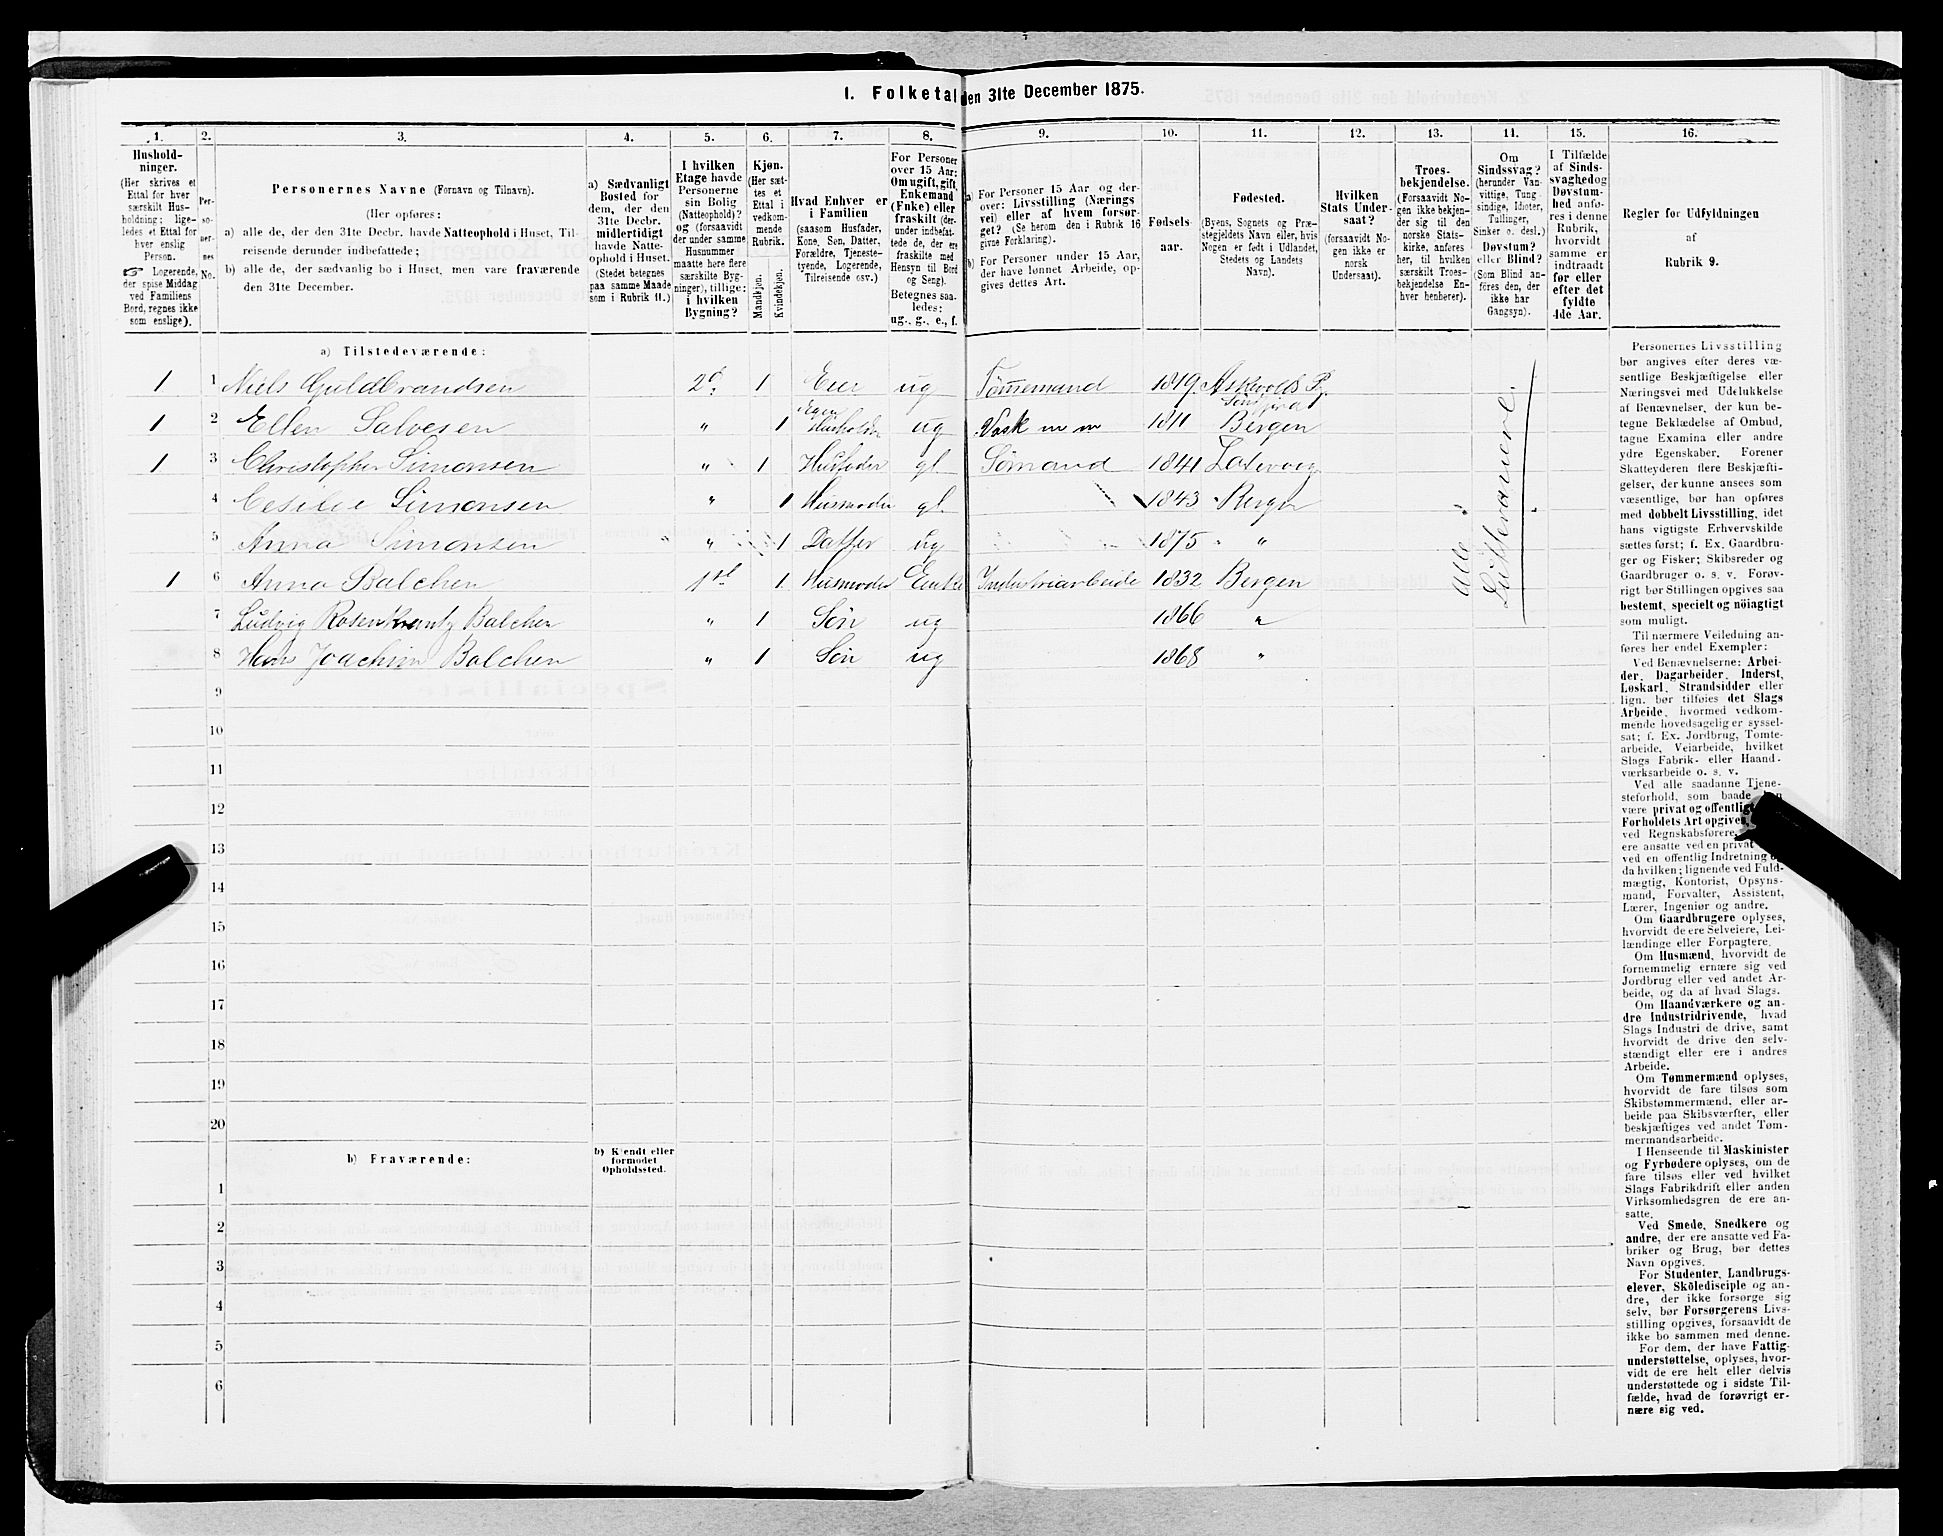 1. Folketal den 31te December 1875.
1. 2. 3. 4. 5. 6. 7. 8. 9. 10. 11. 12. 13. 14. 15. 16.
Hushold-
ninger.
(Her skrives et
Ettal for hver
særskilt Hus-
holdning; lige-
ledes et Ettal for
hver enslig
Person.
☞ Logerende,
der spise Middag
ved Familiens
Bord, regnes ikke
som enslige).
Per-
so-
ner-
nes
No.
Personernes Navne (Fornavn og Tilnavn).
(Her opføres:
a) alle de, der den 31te Decbr. havde Natteophold i Huset, Til-
reisende derunder indbefattede;
b) alle de, der sædvanlig bo i Huset, men vare fraværende
den 31te December.
a) Sædvanligt
Bosted for
dem, der den
31te Decbr.
midlertidigt
havde Natte-
ophold i Huset.
(Stedet betegnes
paa samme Maade
som i Rubrik 11.)
I hvilken
Etage havde
Personerne
sin Bolig
(Natteophold)?
og (forsaavidt
der under samme
Husnummer
maatte høre flere
særskilte Byg-
ninger), tillige:
i hvilken
Bygning?
Kjøn.
(Her sæt-
tes et
Ettal i
vedkom-
mende
Rubrik.
Mandkjøn.
Kvindekjøn.
Hvad Enhver er
i Familien
(saasom Husfader,
Kone, Søn, Datter,
Forældre, Tjeneste-
tyende, Logerende,
Tilreisende osv.)
For Personer
over 15 Aar:
Om ugift, gift,
Enkemand
(Enke) eller
fraskilt (der-
under indbefat-
tede de, der ere
fraskilte med
Hensyn til Bord
og Seng).
Betegnes saa-
ledes:
ug., g., e., f.
a) For Personer 15 Aar og der-
over: Livsstilling (Nærings
vei) eller af hvem forsør-
get? (Se herom den i Rubrik 16
givne Forklaring).
b) For Personer under 15 Aar,
der have lønnet Arbeide, op-
gives dettes Art.
Fødsels-
aar.
Fødested.
(Byens, Sognets og Præ-
stegjeldets Navn eller, hvis
Nogen er født i Udlandet,
Stedets og Landets
Navn).
Hvilken
Stats Under-
saat?
(forsaavidt No-
gen ikke er
norsk
Undersaat).
Troes-
bekjendelse.
(Forsaavidt No-
gen ikke bekjen-
der sig til den
norske Stats-
kirke, anføres
her, til hvilken
særskilt Troes-
bekjendelse En-
hver henhører).
Om
Sindssvag?
(herunder Van-
vittige, Tung-
sindige, Idioter,
Tullinger,
Sinker o. desl.)
Døvstum?
eller Blind?
(Som Blind an-
føres den, der
ikke har
Gangsyn).
I Tilfælde
af Sinds-
svaghed og
Døvstum-
hed anfø-
res i denne
Rubrik,
hvorvidt
samme er
indtraadt
før eller
efter det
fyldte
4de Aar.
Regler for Udfyldningen
af
Rubrik 9.
a) Tilstedeværende:
1 1 Niels Guldbrandsen 2d. 1 Eier ug Tømmemand 1819 Askevolds P.
1 2 Ellen Salvesen " 1 Egen Husholdn ug Vask m m 1811 Bergen
1 3 Christopher Simonsen " 1 Husfader gl Sømand 1841
4 Cesilie Simonsen " 1 Husmoder gl 1843 Bergen
5 Anna Simonsen " 1 Datter ug 1875 "
1 6 Anna Balchen 1st 1 Husmoder Enke Industriarbeide 1832 Bergen
7 Ludvig Rosenkrantz Balchen " 1 Søn ug 1866 "
8 Hans Joachim Balchen " 1 Søn ug 1868 "
Alle Lutheranere.
9
10
11
12
13
14
15
16
17
18
19
20
b) Fraværende:
b) Kjendt eller
formodet
Opholdssted.
1
2
3
4
5
6
Personernes Livsstilling
bør angives efter deres væ-
sentlige Beskjæftigelse eller
Næringsvei med Udelukkelse
af Benævnelser, der kun be-
tegne Beklædelse af Ombud,
tagne Examina eller andre
ydre Egenskaber. Forener
Skatteyderen flere Beskjæfti-
gelser, der kunne ansees som
væsentlige, bør han opføres
med dobbelt Livsstilling, idet
hans vigtigste Erhvervskilde
sættes først; f. Ex. Gaardbru-
ger og Fisker; Skibsreder og
Gaardbruger o. s. v. Forøv-
rigt bør Stillingen opgives saa
bestemt, specielt og nöiagtigt
som muligt.
Til nærmere Veiledning an-
føres her endel Exempler:
Ved Benævnelserne: Arbei-
der, Dagarbeider, Inderst,
Løskarl, Strandsidder eller
lign. bør tilføies det Slags
Arbeide, hvormed vedkom-
mende hovedsagelig er syssel-
sat; f. Ex. Jordbrug, Tomte-
arbeide, Veiarbeide, hvilket
Slags Fabrik- eller Haand-
værksarbeide o. s. v.
Ved alle saadanne Tjene-
steforhold, som baade
være privat og offentlig
Forholdets Art opgives,
ved Regnskabsførere,
ere ansatte ved en privat
ved en offentlig Indretning
da hvilken; lignende ved Fuld-
mægtig, Kontorist, Opsyns-
mand, Forvalter, Assistent,
Lærer, Ingeniør og andre.
Om Gaardbrugere oplyses,
hvorvidt de ere Selveiere, Lei-
lændinge eller Forpagtere.
Om Husmænd, hvorvidt de
fornemmelig ernære sig ved
Jordbrug eller ved andet Ar-
beide, og da af hvad Slags.
Om Haandværkere og an-
dre Industridrivende, hvad
Slags Industri de drive, samt
hvorvidt de drive den selv-
stændigt eller ere i andres
Arbeide.
Om Tømmermænd oplyses,
hvorvidt de fare tilsøs som
Skibstømmermænd, eller ar-
beide paa Skibsværfter, eller
beskjæftiges ved andet Tøm-
mermandsarbeide.
I Henseende til Maskinister
og Fyrbødere oplyses, om de
fare tilsøs eller ved hvilket
Slags Fabrikdrift eller anden
Virksomhedsgren de ere an-
satte.
Ved Smede, Snedkere og
andre, der ere ansatte ved Fa-
briker og Brug, bør dettes
Navn opgives.
For Studenter, Landbrugs-
elever, Skõledisciple og an-
dre, der ikke forsørge sig
selv, bør Forsørgerens Livs-
stilling opgives, forsaavidt de
ikke bo sammen med denne.
For dem, der have Fattig-
understøttelse, oplyses, hvor-
vidt de ere helt eller delvis
understøttede og i sidste Til-
fælde, hvad de forøvrigt er-
nære sig ved.